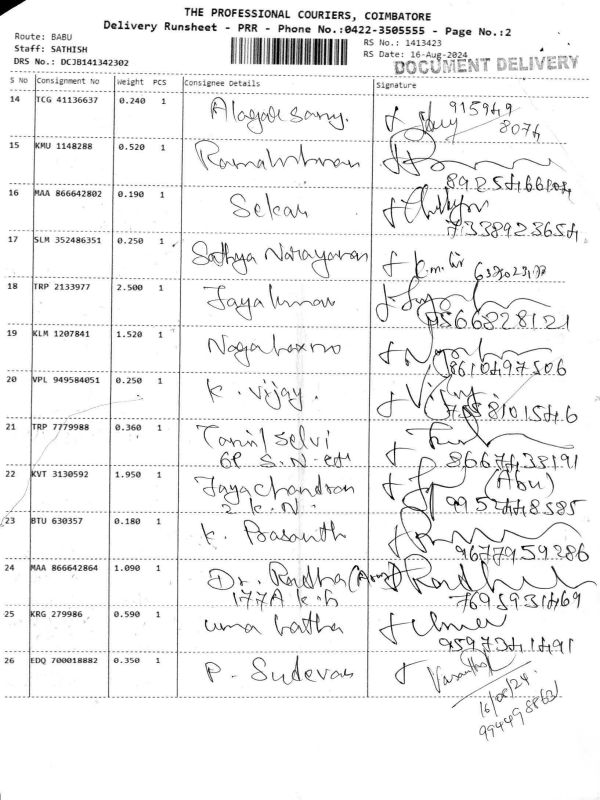 THE PROFESSIONAL COURIERS, COIMBATORE
Delivery Runsheet - PRR - Phone No.:0422-3505555 - Page No.:2
Route: BABU
RS No.: 1413423
Staff: SATHISH
RS Date: 16-Aug-2024
DRS No.: DCJB141342302
DOCUMENT DELIVERY
S No Consignment No Weight PCS Consignee Details Signature
14 TCG 41136637 0.240 1 915949
8074
15 KMU 1148288 0.520 1
16 MAA 866642802 0.190 1 Sekar
7338923654
17 SLM 352486351 0.250 1 Sathya Narayanan
18 TRP 2133977 2.500 1 Jayakumar
9566828121
19 KLM 1207841 1.520 1
8610497506
20 VPL 949584051 0.250 1 K. Vijay. Vijay
21 TRP 7779988 0.360 1 Tamil Selvi
8667433191
22 KVT 3130592 1.950 1 Jayachandran (Abu)
2 K.N. 9952448585
23 BTU 630357 0.180 1 K. Prasanth
9677959286
24 MAA 866642864 1.090 1 Dr. Radha Radha
177A 7695931469
25 KRG 279986 0.590 1 Uma
9597341491
26 EDQ 700018882 0.350 1 P. Sudevan
16/08/24